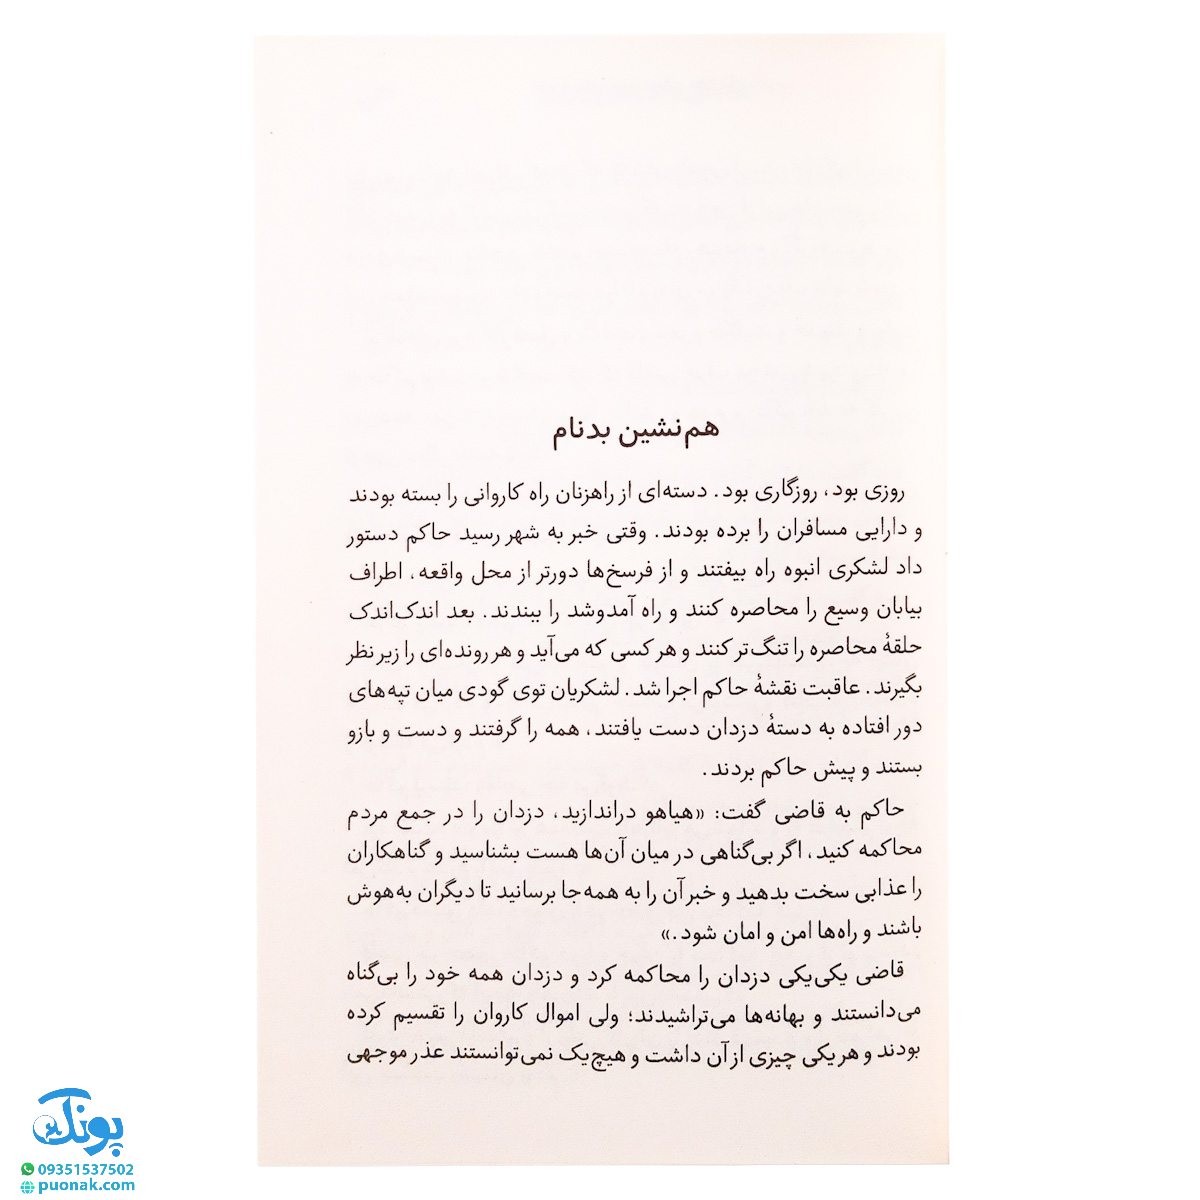 هم‌نشین بدنام
روزی بود، روزگاری بود. دسته‌ای از راهزنان راه کاروانی را بسته بودند
و دارایی مسافران را برده بودند. وقتی خبر به شهر رسید حاکم دستور
داد لشکری انبوه راه بیفتند و از فرسخ‌ها دورتر از محل واقعه، اطراف
بیابان وسیع را محاصره کنند و راه آمدوشد را ببندند. بعد اندک‌اندک
حلقهٔ محاصره را تنگ‌تر کنند و هر کسی که می‌آید و هر رونده‌ای را زیر نظر
بگیرند. عاقبت نقشهٔ حاکم اجرا شد. لشکریان توی گودی میان تپه‌های
دور افتاده به دستهٔ دزدان دست یافتند، همه را گرفتند و دست و بازو
بستند و پیش حاکم بردند.
حاکم به قاضی گفت: «هیاهو دراندازید، دزدان را در جمع مردم
محاکمه کنید، اگر بی‌گناهی در میان آن‌ها هست بشناسید و گناهکاران
را عذابی سخت بدهید و خبر آن را به همه‌جا برسانید تا دیگران به‌هوش
باشند و راه‌ها امن و امان شود.»
قاضی یکی‌یکی دزدان را محاکمه کرد و دزدان همه خود را بی‌گناه
می‌دانستند و بهانه‌ها می‌تراشیدند؛ ولی اموال کاروان را تقسیم کرده
بودند و هر یکی چیزی از آن داشت و هیچ‌یک نمی‌توانستند عذر موجهی
پونک
09351537502
puonak.com